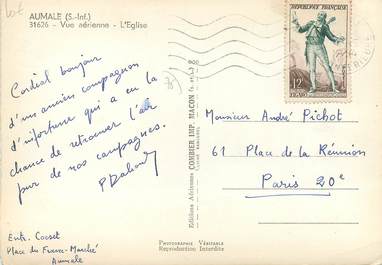 AUMALE (S.-Inf.)
31626 - Vue aérienne - L'Eglise
Cordial bonjour
d'un ancien compagnon
d'infortune qui a eu la
chance de retrouver l'air
pur de nos campagnes.
Entr. Cosset
Place du Franc-Marché
Aumale
Editions Aériennes COMBIER IMP. MACON
PHOTOGRAPHIE VÉRITABLE
Reproduction Interdite
REPUBLIQUE FRANÇAISE
12F
FIGARO
POSTES
Monsieur André Pichot
61 Place de la Réunion
Paris 20e